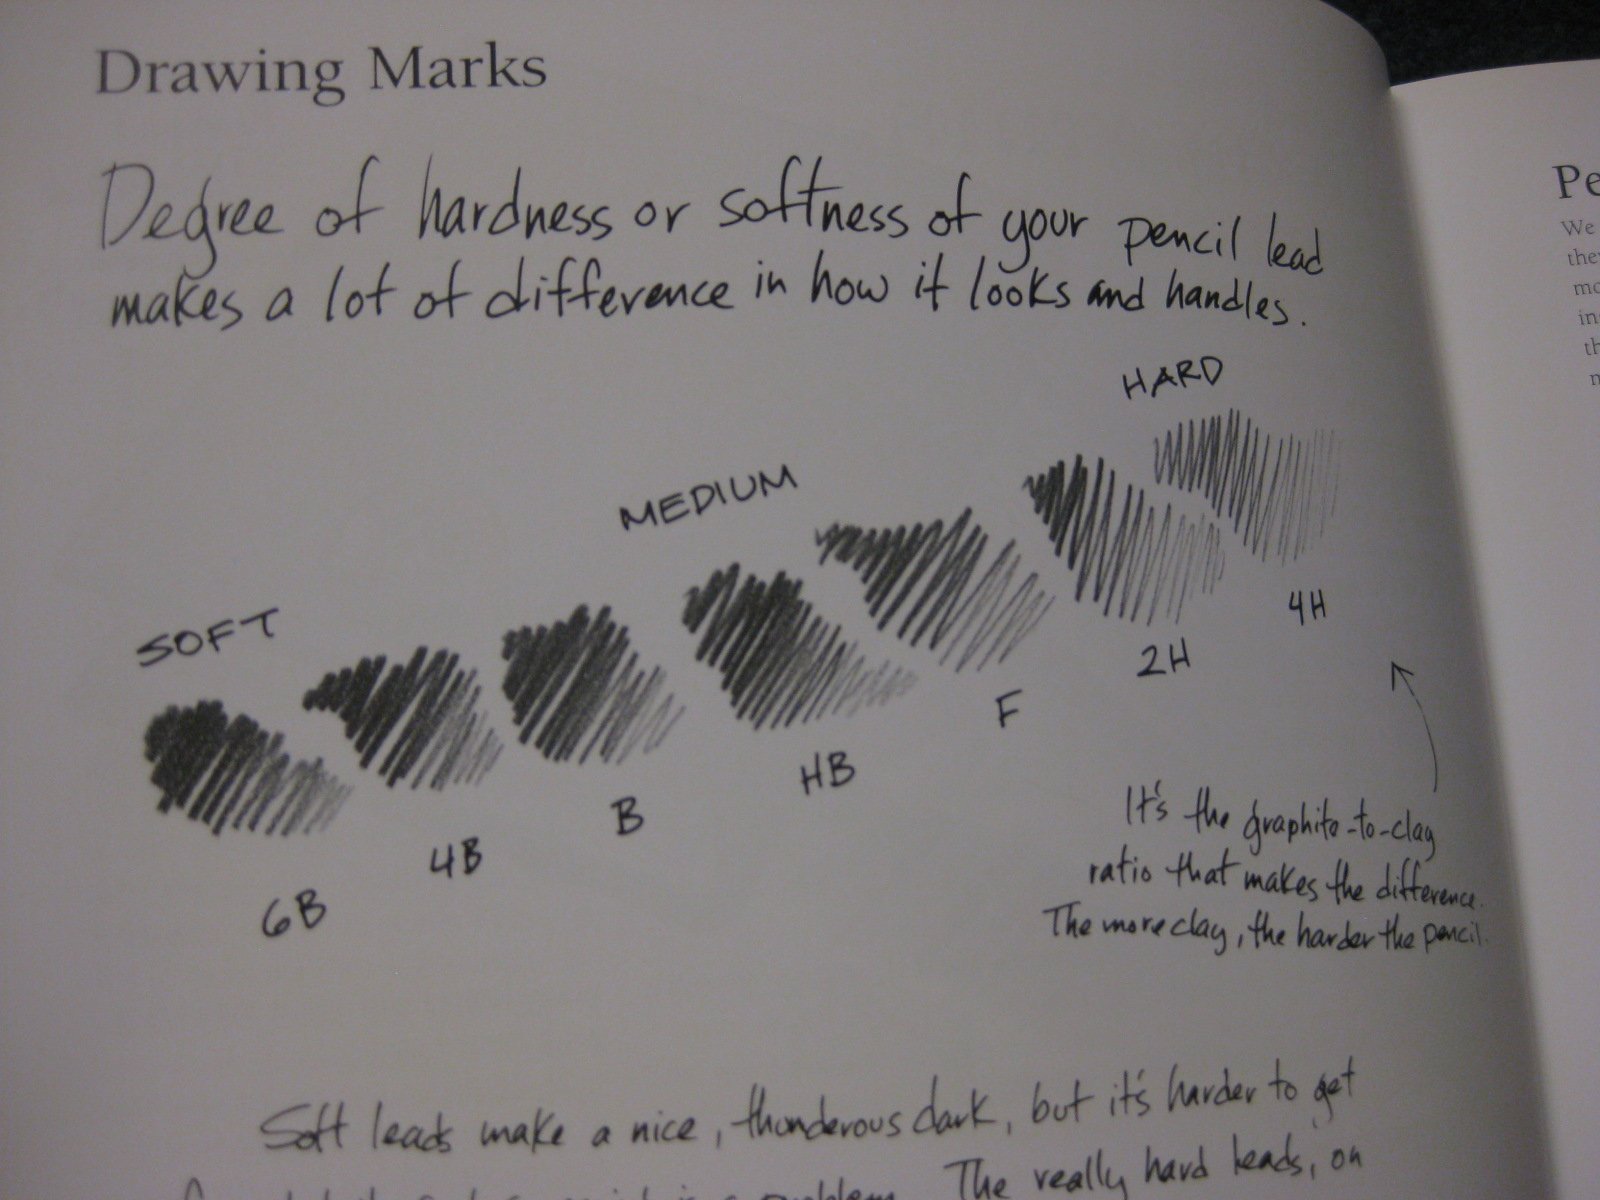 Drawing Marks
Degree of hardness or softness of your pencil lead
makes a lot of difference in how it looks and handles.
HARD
MEDIUM
SOFT
4H
2H
F
HB
B
4B
6B
It's the graphite-to-clay
ratio that makes the difference.
The more clay, the harder the pencil.
Soft leads make a nice, thunderous dark, but it's harder to get
problem. The really hard leads, on
Pe
We
they
mo
in
th